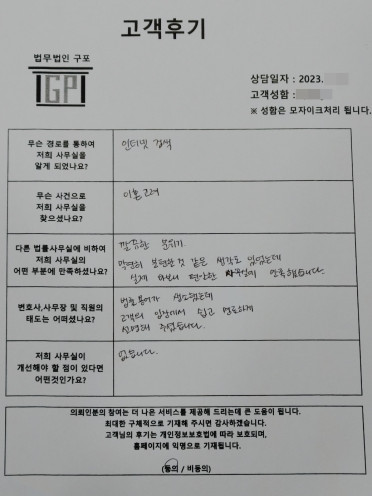 고객후기
법무법인 구포
IGPI
상담일자 : 2023.
고객성함 :
※ 성함은 모자이크처리 됩니다.
무슨 경로를 통하여
저희 사무실을
알게 되었나요?
인터넷 검색
무슨 사건으로
저희 사무실을
찾으셨나요?
이혼
다른 법률사무실에 비하여
저희 사무실의
어떤 부분에 만족하셨나요?
깔끔한 분위기.
막연히 불편할것 같은 생각도 있었는데
실제 와보니 편안한 만족했습니다.
변호사,사무장 및 직원의
태도는 어떠셨나요?
법률용어가 생소했는데
고객의 입장에서 쉽고 명료하게
설명해 주셨습니다.
저희 사무실이
개선해야 할 점이 있다면
어떤것인가요?
없습니다.
의뢰인분의 참여는 더 나은 서비스를 제공해 드리는데 큰 도움이 됩니다.
최대한 구체적으로 기재해 주시면 감사하겠습니다.
고객님의 후기는 개인정보보호법에 따라 보호되며,
홈페이지에 익명으로 기재됩니다.
(동의 / 비동의)